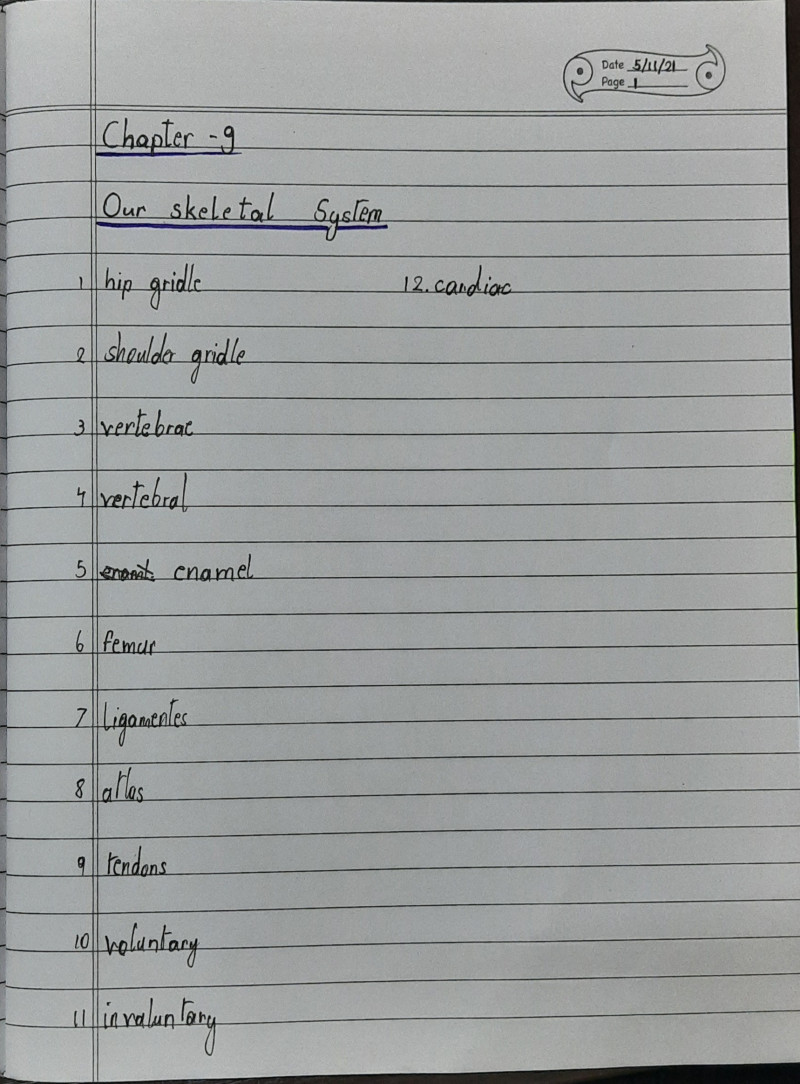 Date 5/11/21
Page 1
Chapter - 9
Our skeletal System
1 hip gridle
12. cardiac
2 shoulder gridle
3 vertebrae
4 vertebral
5 enamel
6 femur
7 ligamentes
8 atlas
9 tendons
10 voluntary
11 invaluntary